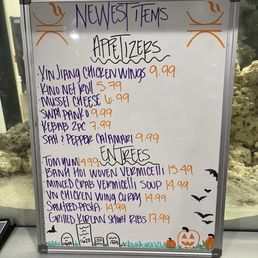 NEWEST ITEMS
APPETIZERS
XIN JIANG CHICKEN WINGS 9.99
KINO NET ROLL 5.79
MUSSEL CHEESE 6.99
PANKO 9.99
KEBAB 2PC 7.99
SALT & PEPPER CALAMARI 9.99
ENTREES
TOM YUM 14.99
BANH HOI WOVEN VERMICELLI 15.49
MINCED CRAB VERMICELLI SOUP 14.99
VN CHICKEN WING CURRY 14.99
PASTA 14.99
GRILLED KOREAN SHORT RIBS 17.99